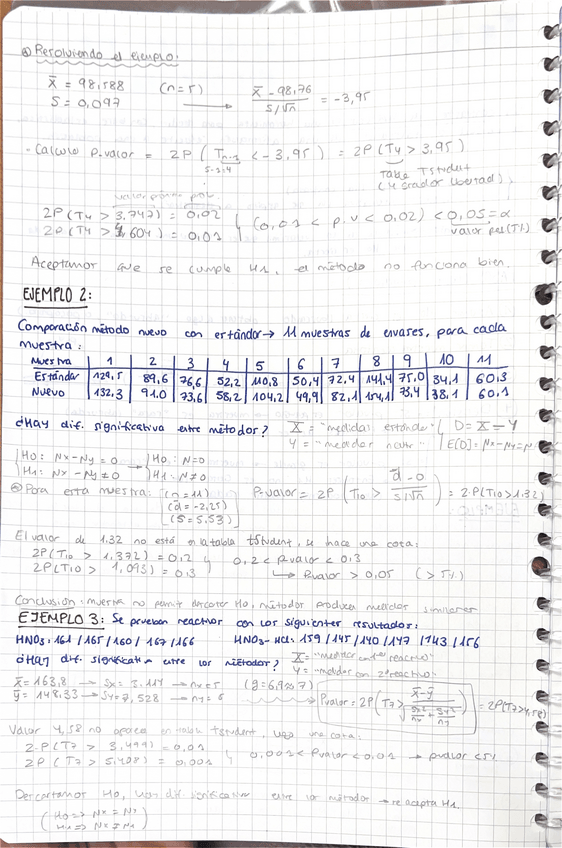 Resolviendo el ejemplo:
X̄ = 98,588 (n=5) X̄ - 98,76 / S/√n = -3,95
S = 0,097
- Calculo p-valor = 2P ( Tn-1 < -3,95) = 2P (T4 > 3,95)
5-1=4 Tabla TStudent
(4 grados libertad).
2P (T4 > 3,747) = 0,02 (0,01 < p.v < 0,02) < 0,05 = α
2P (T4 > 4,604) = 0,01
Aceptamos que se cumple H1, el método no funciona bien.
EJEMPLO 2:
Comparación método nuevo con estándar → 11 muestras de envases, para cada
muestra:
Muestra 1 2 3 4 5 6 7 8 9 10 11
Estándar 129,5 89,6 76,6 52,2 110,8 50,4 72,4 141,4 75,0 34,1 60,3
Nuevo 132,3 91,0 73,6 58,2 104,2 49,9 82,1 154,1 73,4 38,1 60,1
¿Hay dif. significativa entre métodos? X = "medidas estándar" D = X - Y
Y = "medidas nuevo"
H0: Nx - Ny = 0 → H0: N = 0
H1: Nx - Ny ≠ 0 H1: N ≠ 0
Para esta muestra: (n = 11) P-valor = 2P (T10 > d̄ - 0 / S/√n) = 2·P(T10 > 1,32)
(d̄ = -2,25)
(S = 5,53)
El valor de 1,32 no está en la tabla tStudent, se hace una cota:
2P (T10 > 1,372) = 0,2 0,2 < p.valor < 0,3
2P (T10 > 1,093) = 0,3 → P.valor > 0,05 (> 5%)
Conclusión: muestra no permit descartar H0, métodos produce medidas similares
EJEMPLO 3: Se prueban reactivos con los siguientes resultados:
HNO3: 161 / 165 / 160 / 167 / 166 HNO3-HCl: 159 / 145 / 140 / 147 / 143 / 156
¿Hay dif. significativa entre los métodos?
x̄ = 163,8 → Sx = 3,114 → nx = 5
ȳ = 148,33 → Sy = 7,528 → ny = 6 Pvalor = 2P (T7 > x̄ - ȳ / √ Sx²/nx + Sy²/ny) = 2P(T7 > 4,58)
Valor 4,58 no aparece en tabla tStudent, una cota:
2·P (T7 > 3,499) = 0,01 0,001 < Pvalor < 0,01 → pvalor < 5%
2P (T7 > 5,408) = 0,001
Descartamos H0, dif. significativa entre los métodos → se acepta H1.